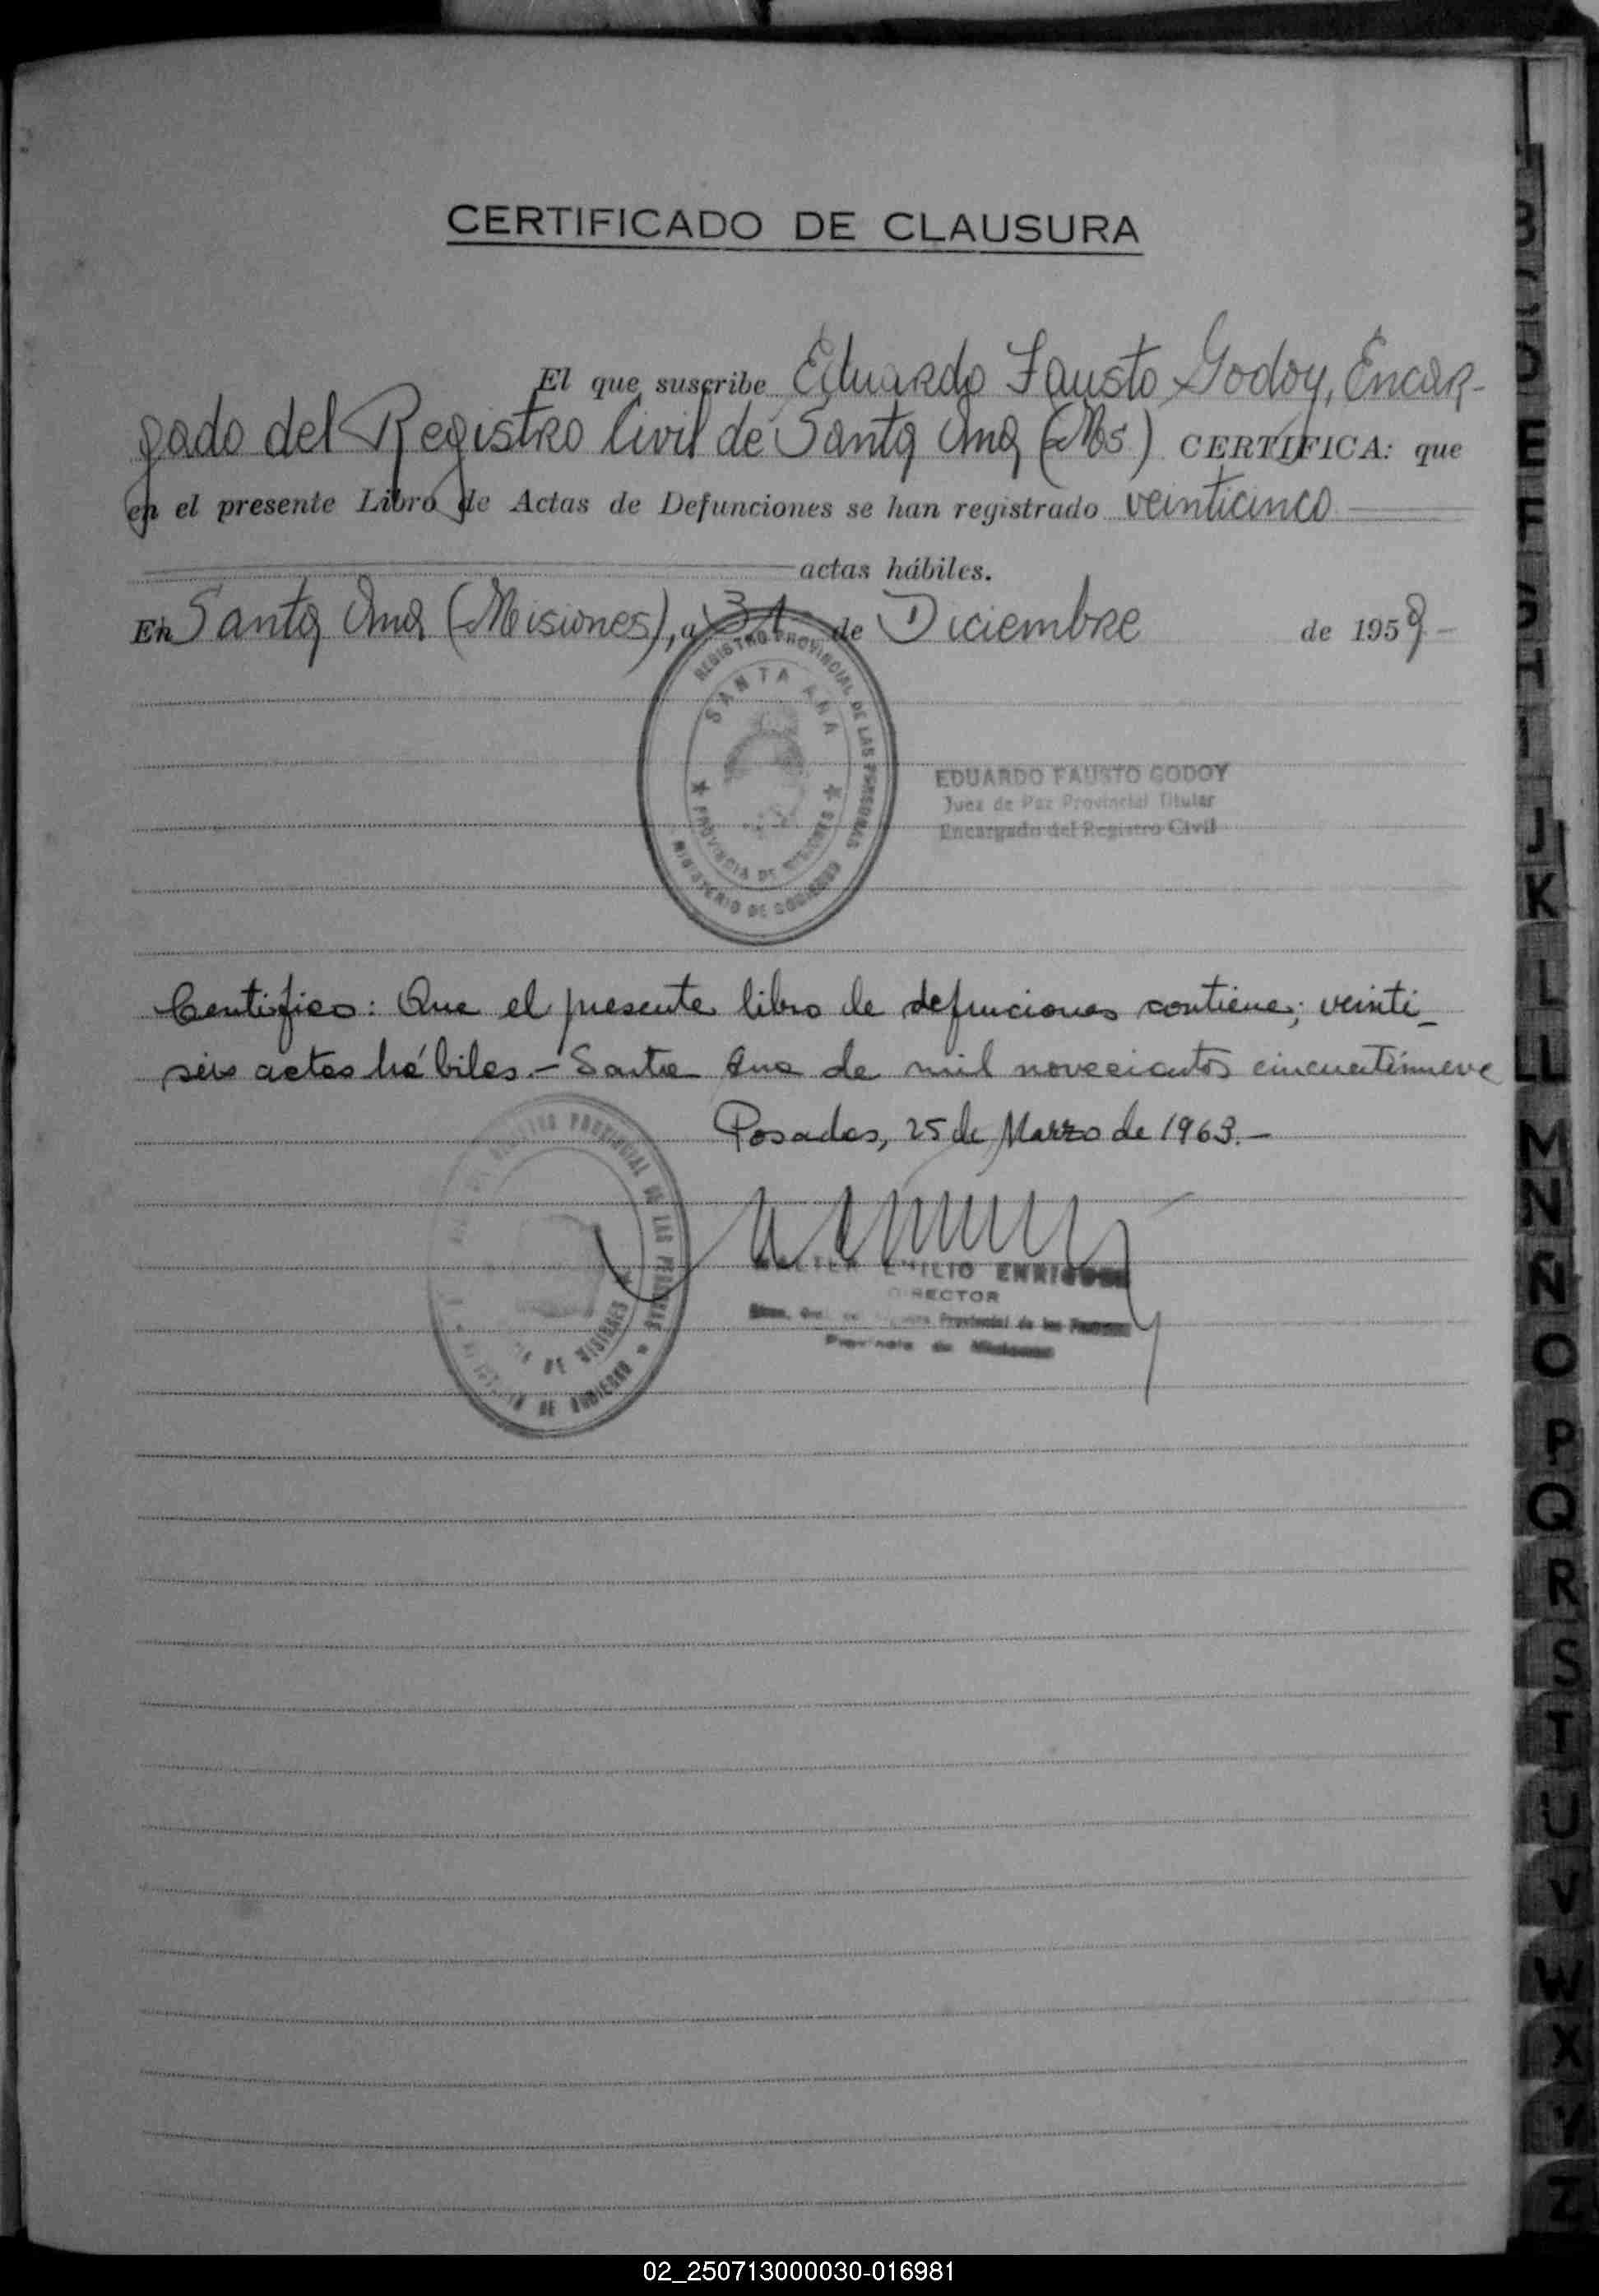 CERTIFICADO DE CLAUSURA
El que suscribe Eduardo Fausto Godoy, Encar-
gado del Registro Civil de Santa Ana (Mns.) CERTIFICA: que
en el presente Libro de Actas de Defunciones se han registrado veinticinco
actas hábiles.
En Santa Ana (Misiones), a 31 de Diciembre de 1959-
REGISTRO PROVINCIAL DE LAS PERSONAS
SANTA ANA
PROVINCIA DE MISIONES
MINISTERIO DE GOBIERNO
EDUARDO FAUSTO GODOY
Juez de Paz Provincial Titular
Encargado del Registro Civil
Certifico: Que el presente libro de defunciones contiene; veinti-
séis actas hábiles.- Santa Ana de mil novecientos cincuentinueve
Posadas, 25 de Marzo de 1963.-
REGISTRO PROVINCIAL DE LAS PERSONAS
DE MISIONES
DE GOBIERNO
EMILIO ENRIQUEZ
DIRECTOR
Provincial de las Personas
Provincia de Misiones
B
C
D
E
F
G
H
I
J
K
L
LL
M
N
Ñ
O
P
Q
R
S
T
U
V
W
X
Y
Z
02_250713000030-016981